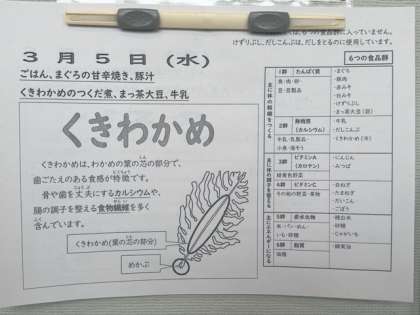 ６つの食品群に入っていません。
けずりぶし、だしこんぶは、だしをとるのに使用しています。
３月５日（水）
ごはん、まぐろの甘辛焼き、豚汁
くきわかめのつくだ煮、まっ茶大豆、牛乳
くきわかめ
くきわかめは、わかめの葉の芯の部分で、
歯ごたえのある食感が特徴です。
骨や歯を丈夫にするカルシウムや、
腸の調子を整える食物繊維を多く
含んでいます。
くきわかめ(葉の芯の部分)
めかぶ
６つの食品群
主に体の組織をつくる
１群 たんぱく質
魚・肉・卵・
豆・豆製品
・まぐろ
・豚肉
・赤みそ
・白みそ
・けずりぶし
・まっ茶大豆（碧）
２群 無機質
（カルシウム）
牛乳・乳製品・
小魚・海そう
・牛乳
・だしこんぶ
・くきわかめ（茎）
主に体の調子を整える
３群 ビタミンA
（カロテン）
緑黄色野菜
・にんじん
・みつば
４群 ビタミンC
その他の野菜・果物
・白ねぎ
・たまねぎ
・だいこん
ごぼう
主にエネルギーになる
５群 炭水化物
米・パン・めん・
いも・砂糖
・精白米
・砂糖
・じゃがいも
６群 脂質
油脂
・綿実油